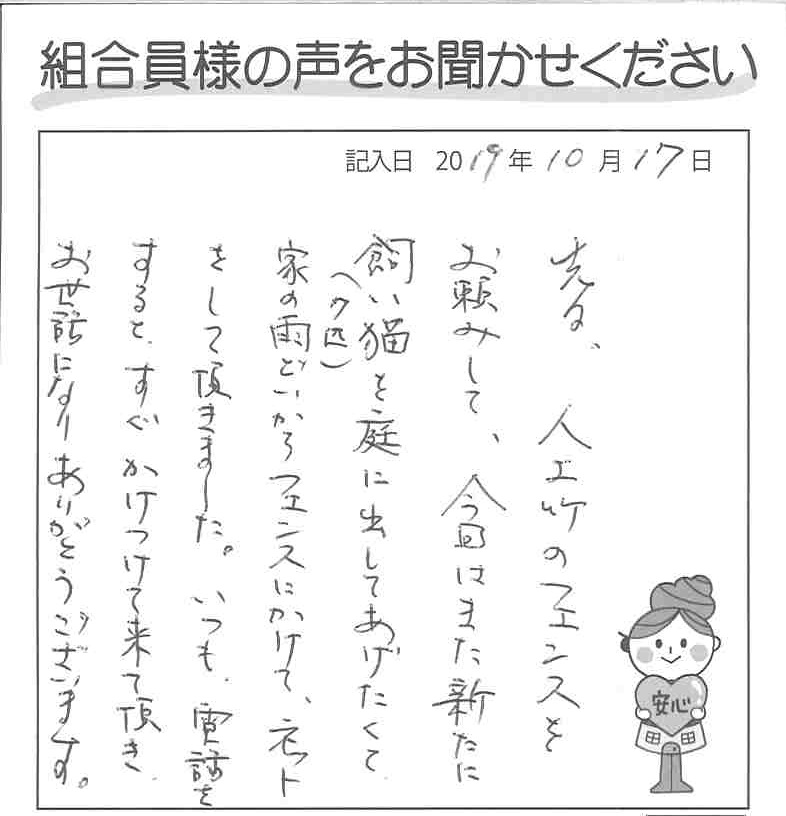 組合員様の声をお聞かせください
記入日 2019年10月17日
先日、人工竹のフェンスを
お頼みして、今回はまた新たに
飼い猫を庭に出してあげたくて
(7匹)
家の雨どいからフェンスにかけて、ネット
をして頂きました。いつも、電話を
すると、すぐかけつけて来て頂き、
お世話になりありがとうございます。
安心